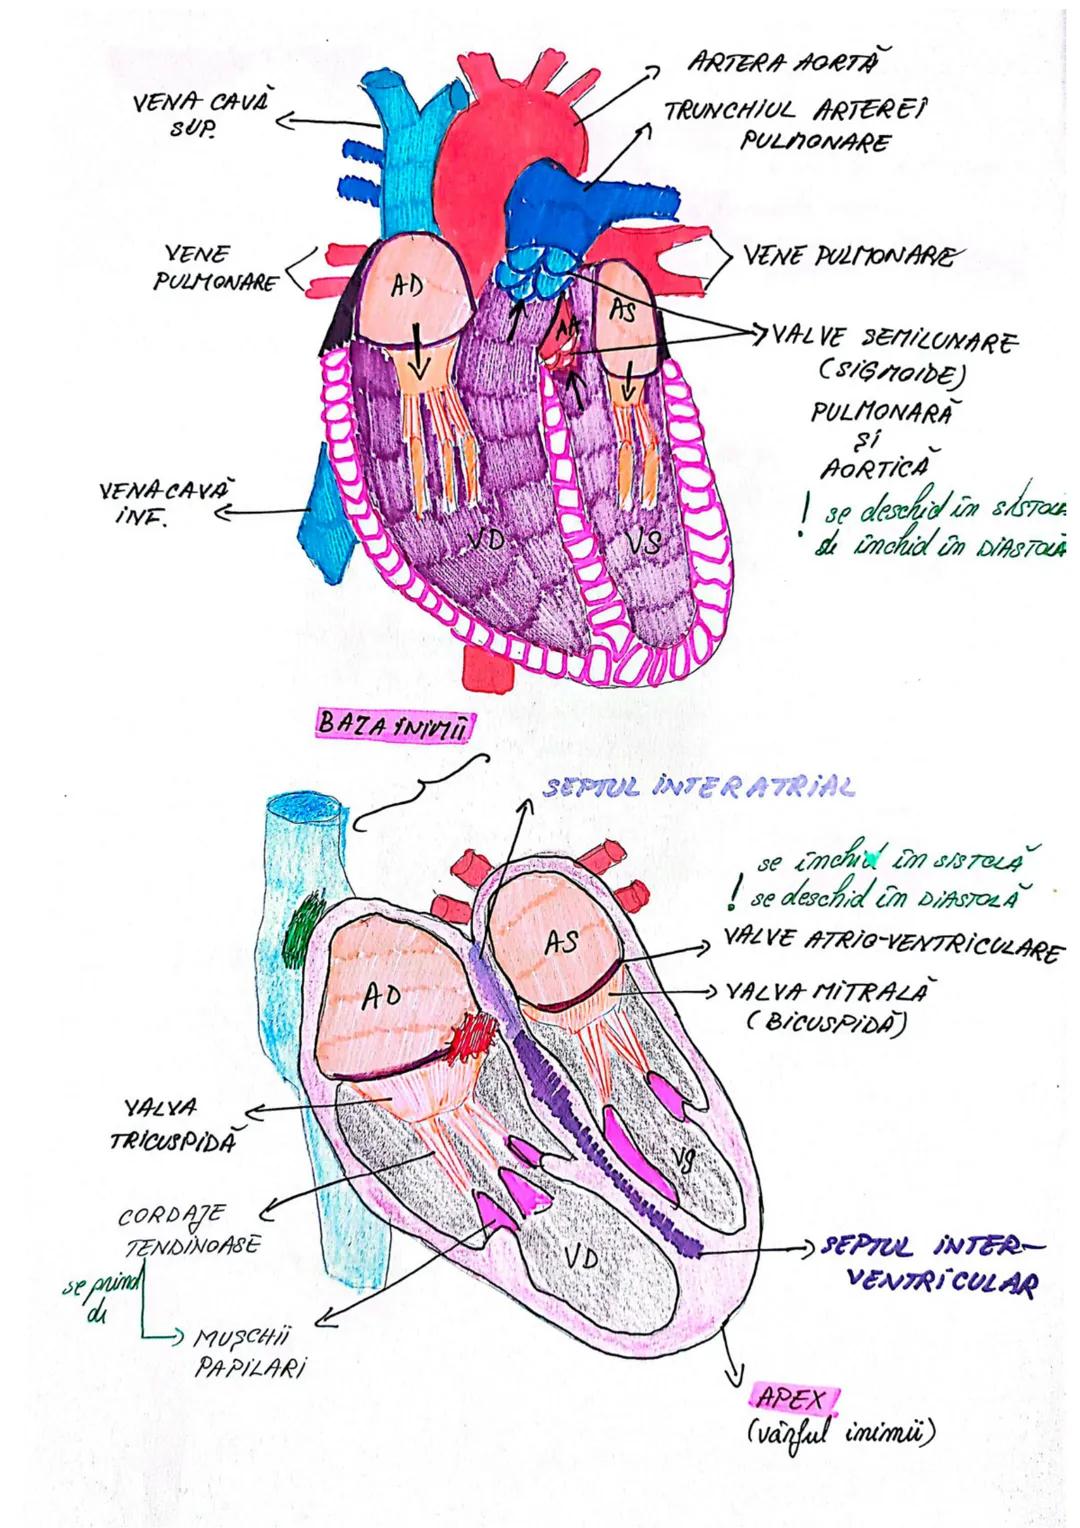 VENA CAVĂ
SUP.
ARTERA AORTĂ
TRUNCHIUL ARTEREI
PULMONARE
VENE
PULMONARE
VENE PULMONARE
AD
AS
AA
VALVE SEMILUNARE
(SIGMOIDE)
PULMONARĂ
ȘI
AORTICĂ
! se deschid în SISTOLĂ
se închid în DIASTOLĂ
VENA CAVĂ
INF.
VD
VS
BAZA INIMII
SEPTUL INTERATRIAL
se închid în SISTOLĂ
! se deschid în DIASTOLĂ
VALVE ATRIO-VENTRICULARE
VALVA MITRALĂ
(BICUSPIDĂ)
AS
AD
VALVA
TRICUSPIDĂ
CORDAJE
TENDINOASE
se prind
de
MUȘCHII
PAPILARI
VS
VD
SEPTUL INTER-
VENTRICULAR
APEX
(vârful inimii)